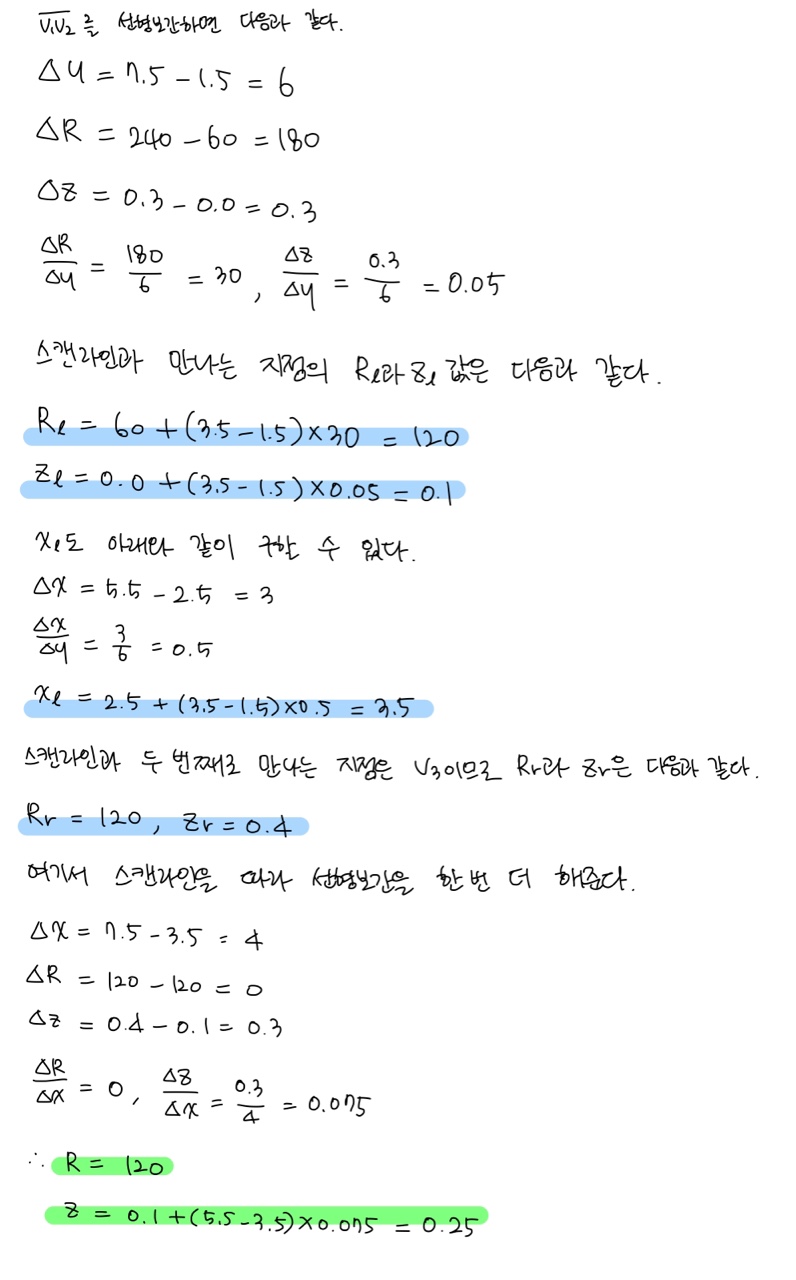 V₁V₂를 선형보간하면 다음과 같다.
△y = 7.5 - 1.5 = 6
△R = 240 - 60 = 180
△z = 0.3 - 0.0 = 0.3
△R/△y = 180/6 = 30, △z/△y = 0.3/6 = 0.05
스캔라인과 만나는 지점의 Rℓ과 zℓ 값은 다음과 같다.
Rℓ = 60 + (3.5 - 1.5) × 30 = 120
zℓ = 0.0 + (3.5 - 1.5) × 0.05 = 0.1
xℓ도 아래와 같이 구할 수 있다.
△x = 5.5 - 2.5 = 3
△x/△y = 3/6 = 0.5
xℓ = 2.5 + (3.5 - 1.5) × 0.5 = 3.5
스캔라인과 두 번째로 만나는 지점은 V₃이므로 Rr과 zr은 다음과 같다.
Rr = 120, zr = 0.4
여기서 스캔라인을 따라 선형보간을 한 번 더 해준다.
△x = 7.5 - 3.5 = 4
△R = 120 - 120 = 0
△z = 0.4 - 0.1 = 0.3
△R/△x = 0, △z/△x = 0.3/4 = 0.075
∴ R = 120
z = 0.1 + (5.5 - 3.5) × 0.075 = 0.25